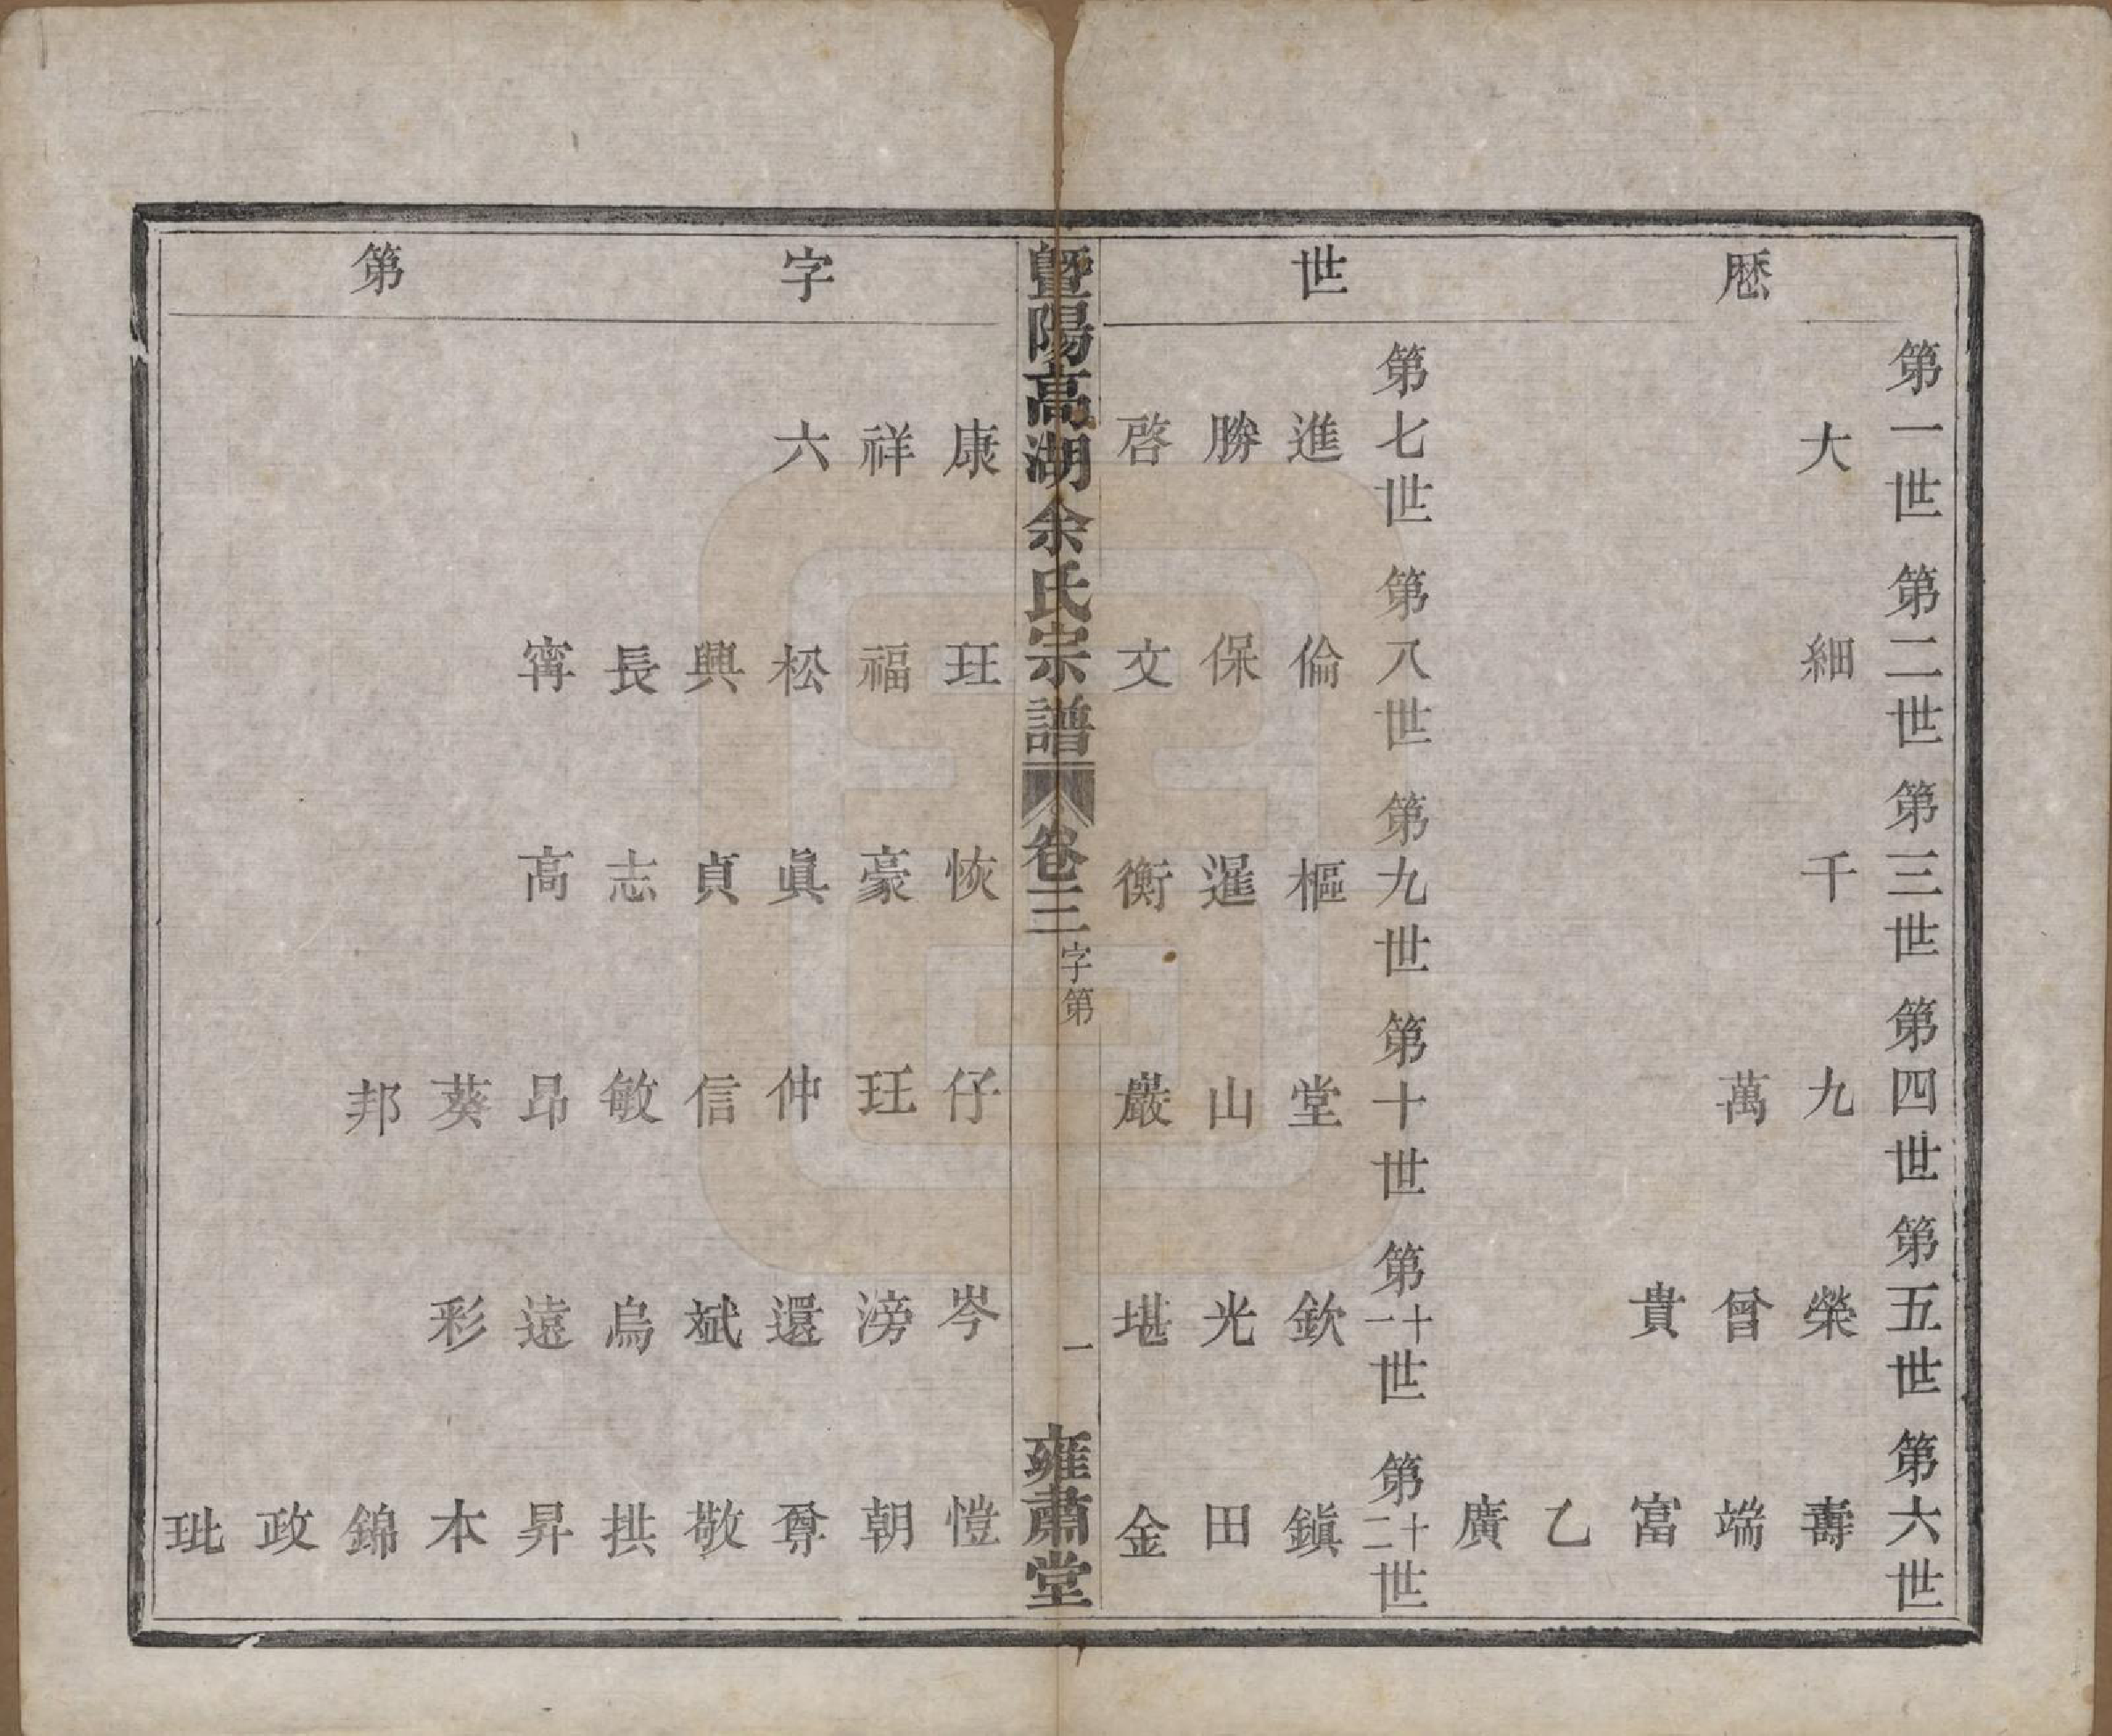 曆世字第
第一世 第二世 第三世 第四世 第五世 第六世
大 細 千 九 榮 壽
萬 曾 端
貴 富
乙
廣
第七世 第八世 第九世 第十世 第十一世 第十二世
進 倫 樞 堂 欽 鎭
勝 保 暹 山 光 田
啓 文 衡 巖 堪 金
暨陽高湖余氏宗譜 卷三 字第 一 雍肅堂
康 玨 恢 仔 岑 愷
祥 福 豪 玨 滂 朝
六 松 眞 仲 還 尊
興 貞 信 斌 敬
長 志 敏 烏 拱
甯 高 昂 遠 昇
葵 彩 本
邦 錦
政
玭